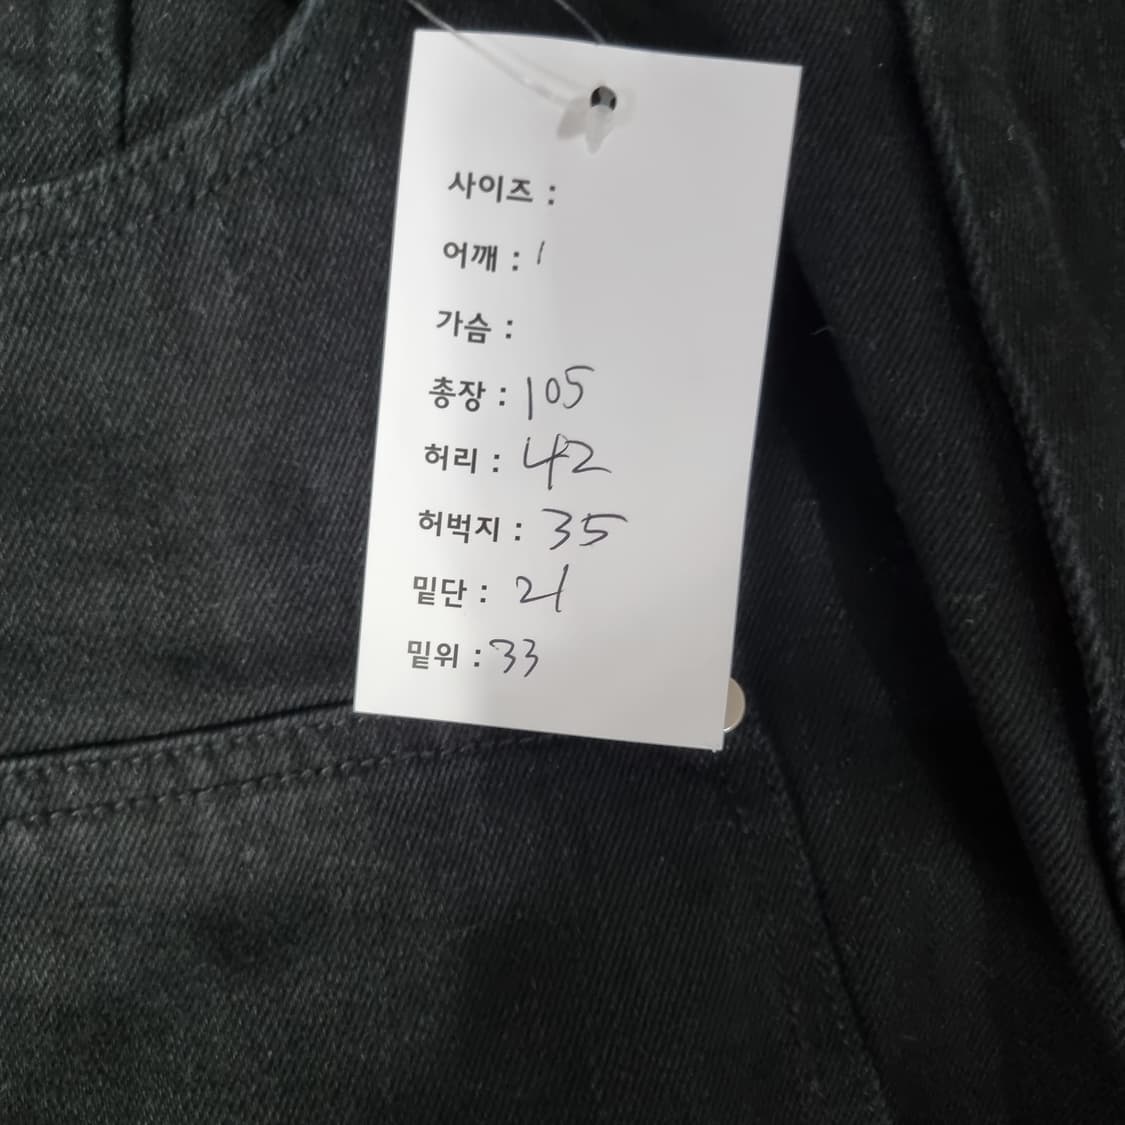 사이즈 :
어깨 : 1
가슴 :
총장 : 105
허리 : 42
허벅지 : 35
밑단 : 21
밑위 : 33